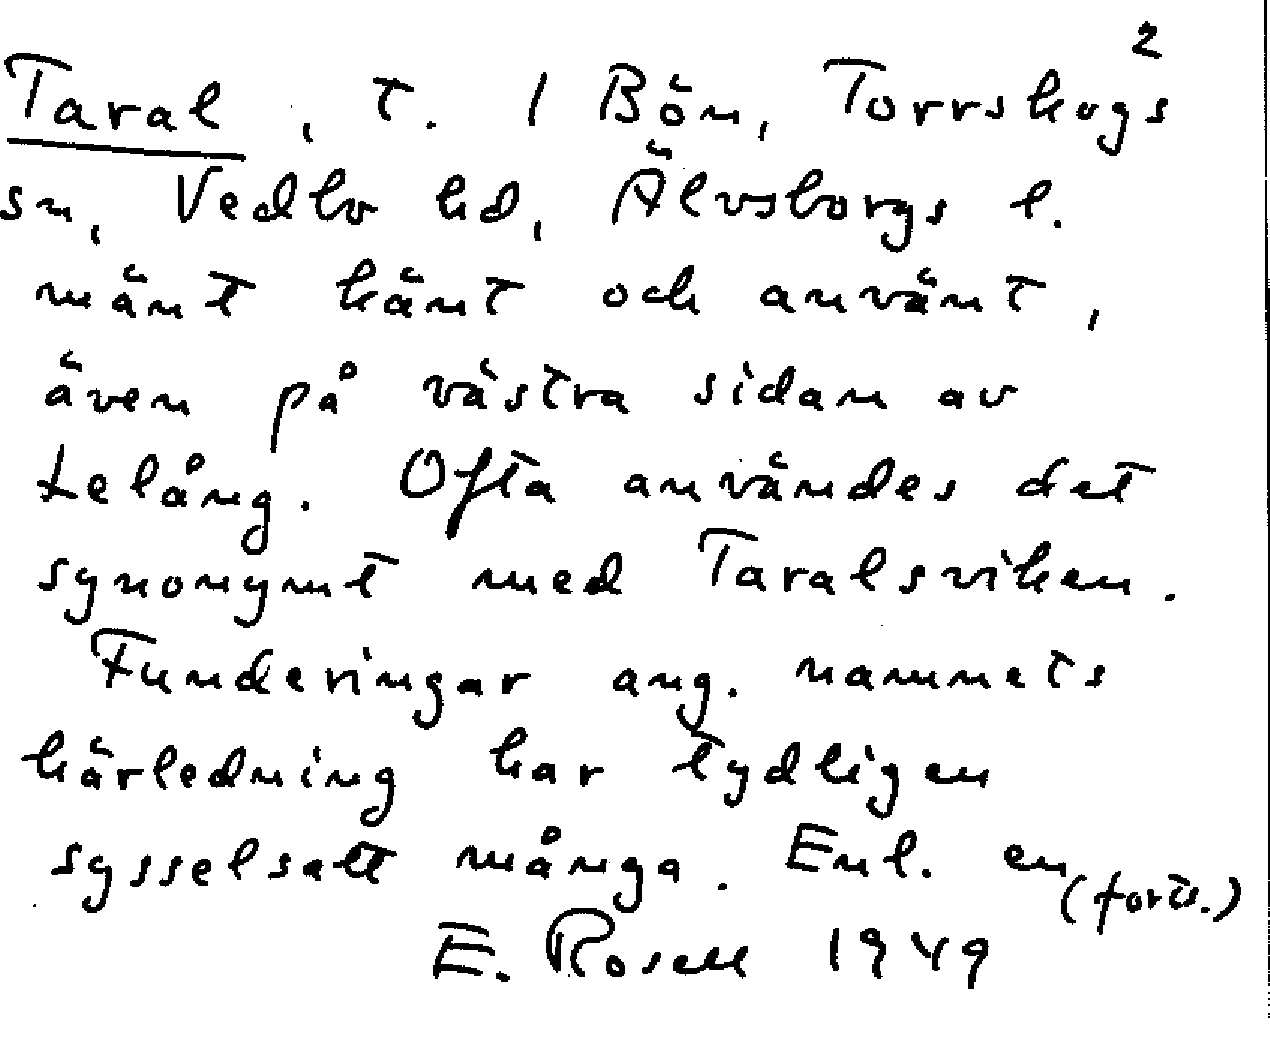 2
Taral, t. 1 Bön, Torrskogs
sn, Vedbo hd, Älvsborgs l.
mänt känt och använt,
även på västra sidan av
Lelång. Ofta användes det
synonymt med Taralsviken.
Funderingar ang. namnets
härledning har tydligen
sysselsatt många. Enl. en
(forts.)
E. Rosell 1949